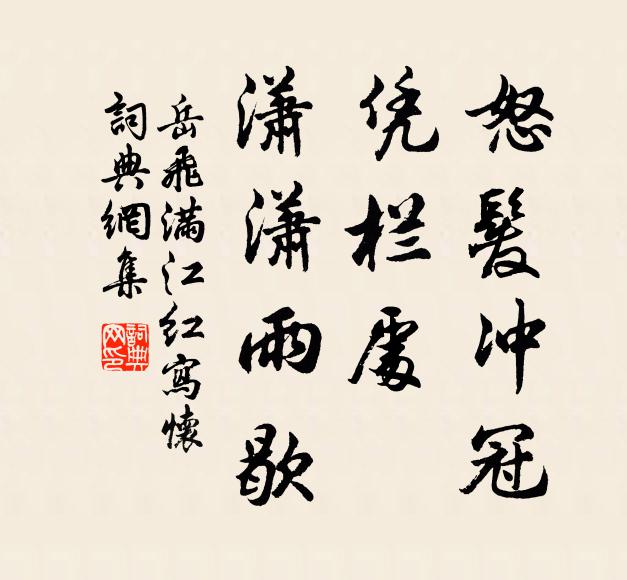 怒髮冲冠
凭栏處
瀟瀟雨歇
岳飛满江红寫懷
詞典網集
詞典
网印